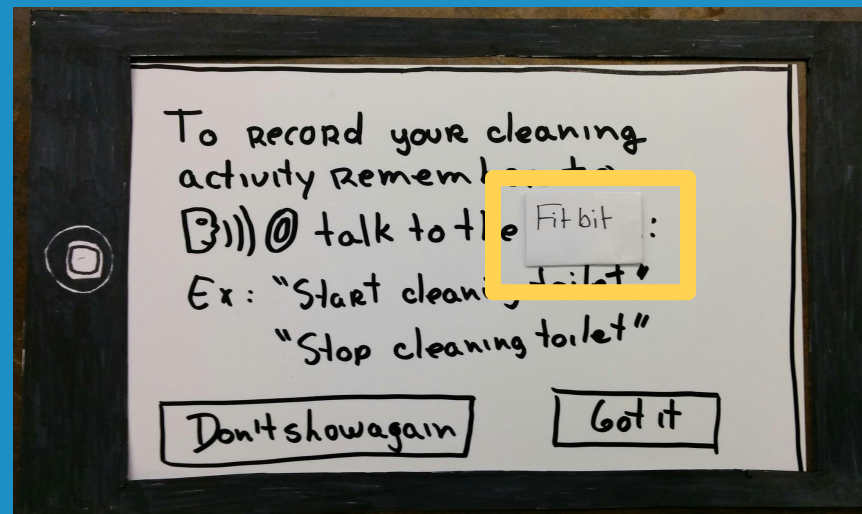 To Record your cleaning
activity Remember to
talk to the Fitbit :
Ex: "Start cleaning toilet"
"Stop cleaning toilet"
Don't show again
Got it